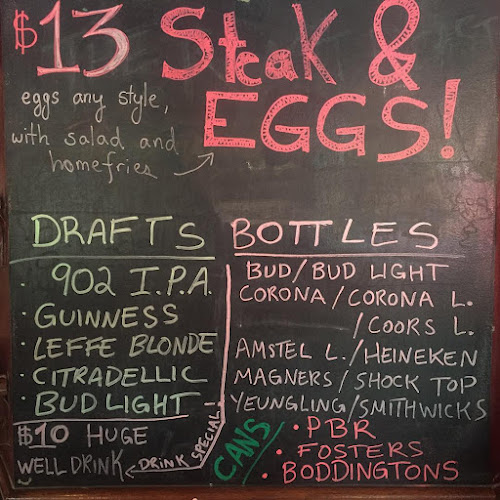 $13 Steak &
EGGS!
eggs any style,
with salad and
homefries
DRAFTS
· 902 I.P.A.
· GUINNESS
· LEFFE BLONDE
· CITRADELLIC
· BUD LIGHT
$10 HUGE
WELL DRINK
DRINK SPECIAL!
BOTTLES
BUD/BUD LIGHT
CORONA/CORONA L.
/COORS L.
AMSTEL L./HEINEKEN
MAGNERS/SHOCK TOP
YEUNGLING/SMITHWICKS
CANS
· PBR
· FOSTERS
· BODDINGTONS